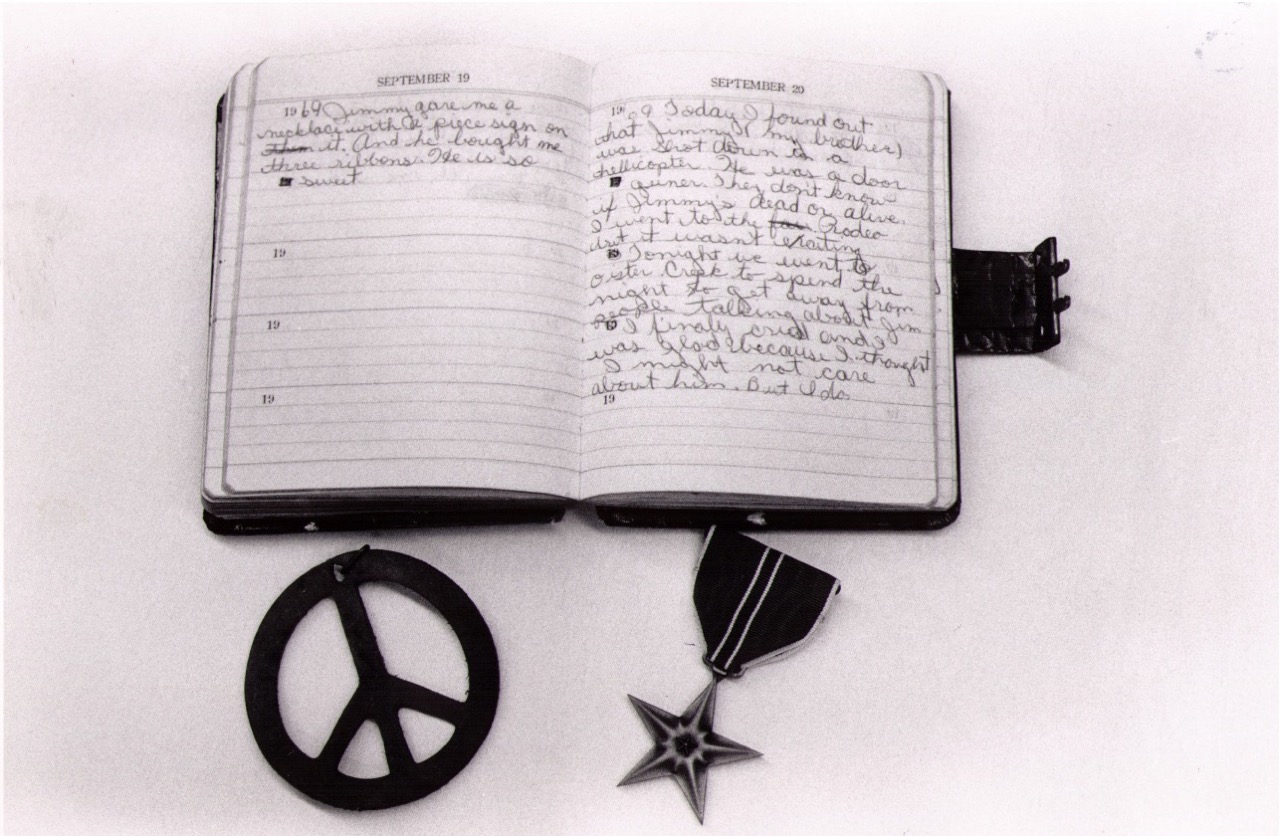 SEPTEMBER 19
1969 Jimmy gave me a
necklace with a piece sign on
them it. And he bought me
three ribbons. He is so
sweet
19
19
19
SEPTEMBER 20
1969 Today I found out
that Jimmy (my brother)
was shot down in a
hellicopter. He was a door
guner. They don't know
if Jimmy's dead or alive.
I went to the Rodeo
but it wasn't exciting
Tonight we went to
oister Creek to spend the
night to get away from
people talking about Jim
I finaly cried and I
was glad because I thought
I might not care
about him. But I do
19